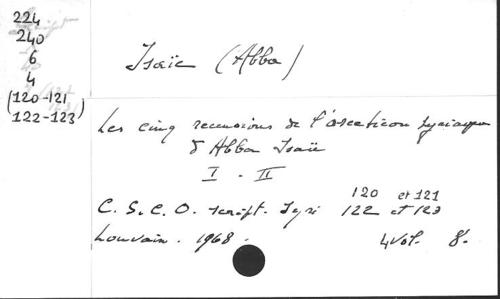 224
240
6
4
(120-121)
122-123
Isaïe (Abba)
Les cinq recensions de l'asceticon syriaque
d'Abba Isaïe
I - II
120 et 121
C. S. C. O. script. Syri 122 et 123
Louvain. 1968. 4 vol. 8°.